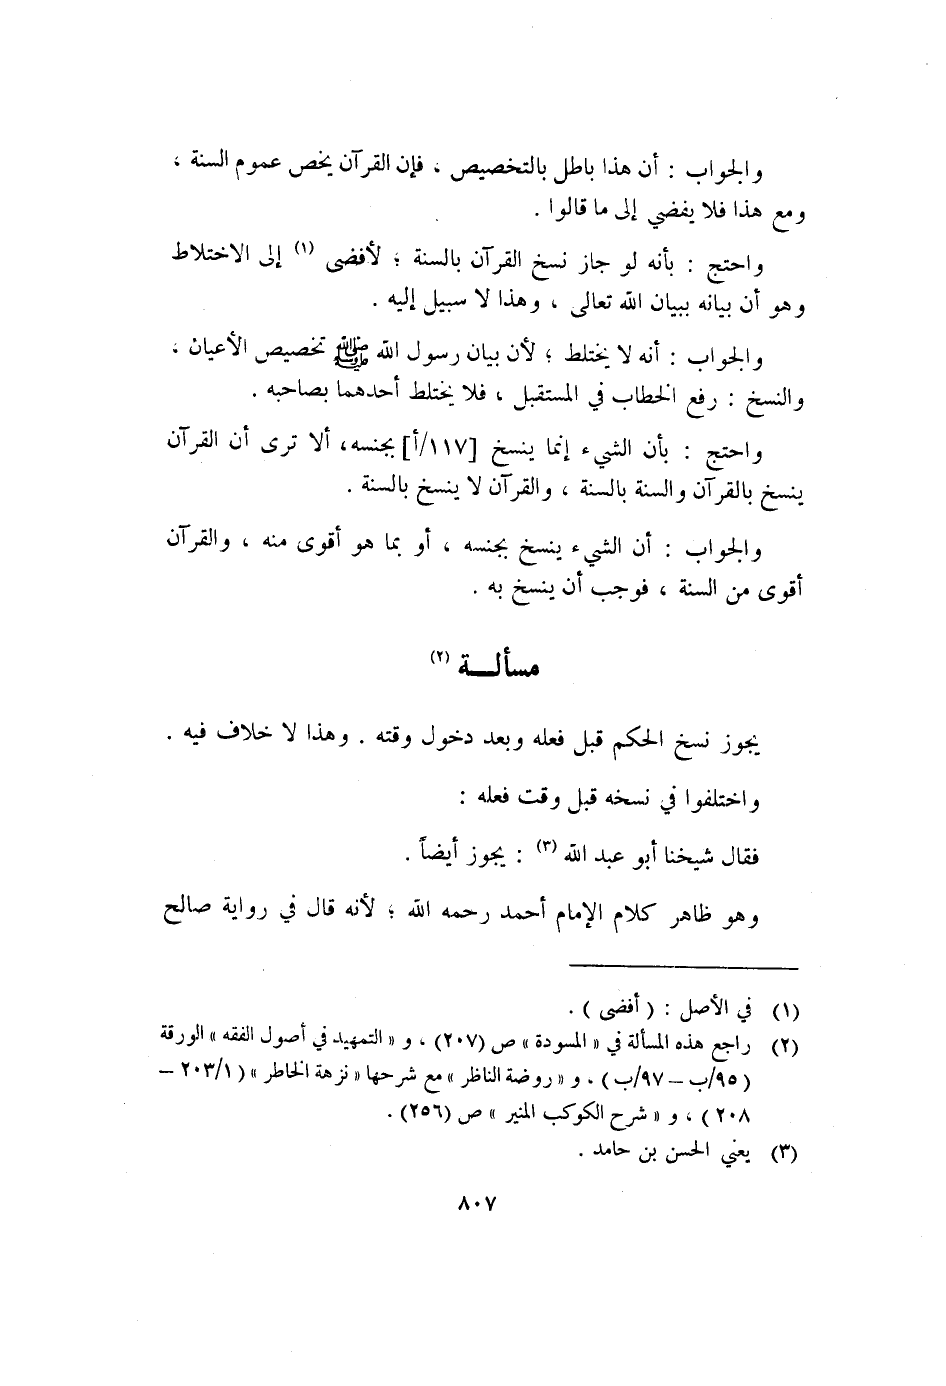 والجواب : أن هذا باطل بالتخصيص ، فإن القرآن يخص عموم السنة ،
ومع هذا فلا يفضي إلى ما قالوا .
واحتج : بأنه لو جاز نسخ القرآن بالسنة ؛ لأفضى (١) إلى الاختلاط
وهو أن بيانه ببيان الله تعالى ، وهذا لا سبيل إليه .
والجواب : أنه لا يختلط ؛ لأن بيان رسول الله ﷺ تخصيص الأعيان ،
والنسخ : رفع الخطاب في المستقبل ، فلا يختلط أحدهما بصاحبه .
واحتج : بأن الشيء إنما ينسخ [١١٧/أ] بجنسه، ألا ترى أن القرآن
ينسخ بالقرآن والسنة بالسنة ، والقرآن لا ينسخ بالسنة .
والجواب : أن الشيء ينسخ بجنسه ، أو بما هو أقوى منه ، والقرآن
أقوى من السنة ، فوجب أن ينسخ به .
مسألـــة (٢)
يجوز نسخ الحكم قبل فعله وبعد دخول وقته . وهذا لا خلاف فيه .
واختلفوا في نسخه قبل وقت فعله :
فقال شيخنا أبو عبد الله (٣) : يجوز أيضاً .
وهو ظاهر كلام الإمام أحمد رحمه الله ؛ لأنه قال في رواية صالح
(١) في الأصل : ( أفضى ) .
(٢) راجع هذه المسألة في « المسودة » ص (٢٠٧) ، و « التمهيد في أصول الفقه » الورقة
(٩٥/ب – ٩٧/ب) ، و « روضة الناظر » مع شرحها « نزهة الخاطر » (٢٠٣/١ –
٢٠٨) ، و « شرح الكوكب المنير » ص (٢٥٦) .
(٣) يعني الحسن بن حامد .
٨٠٧